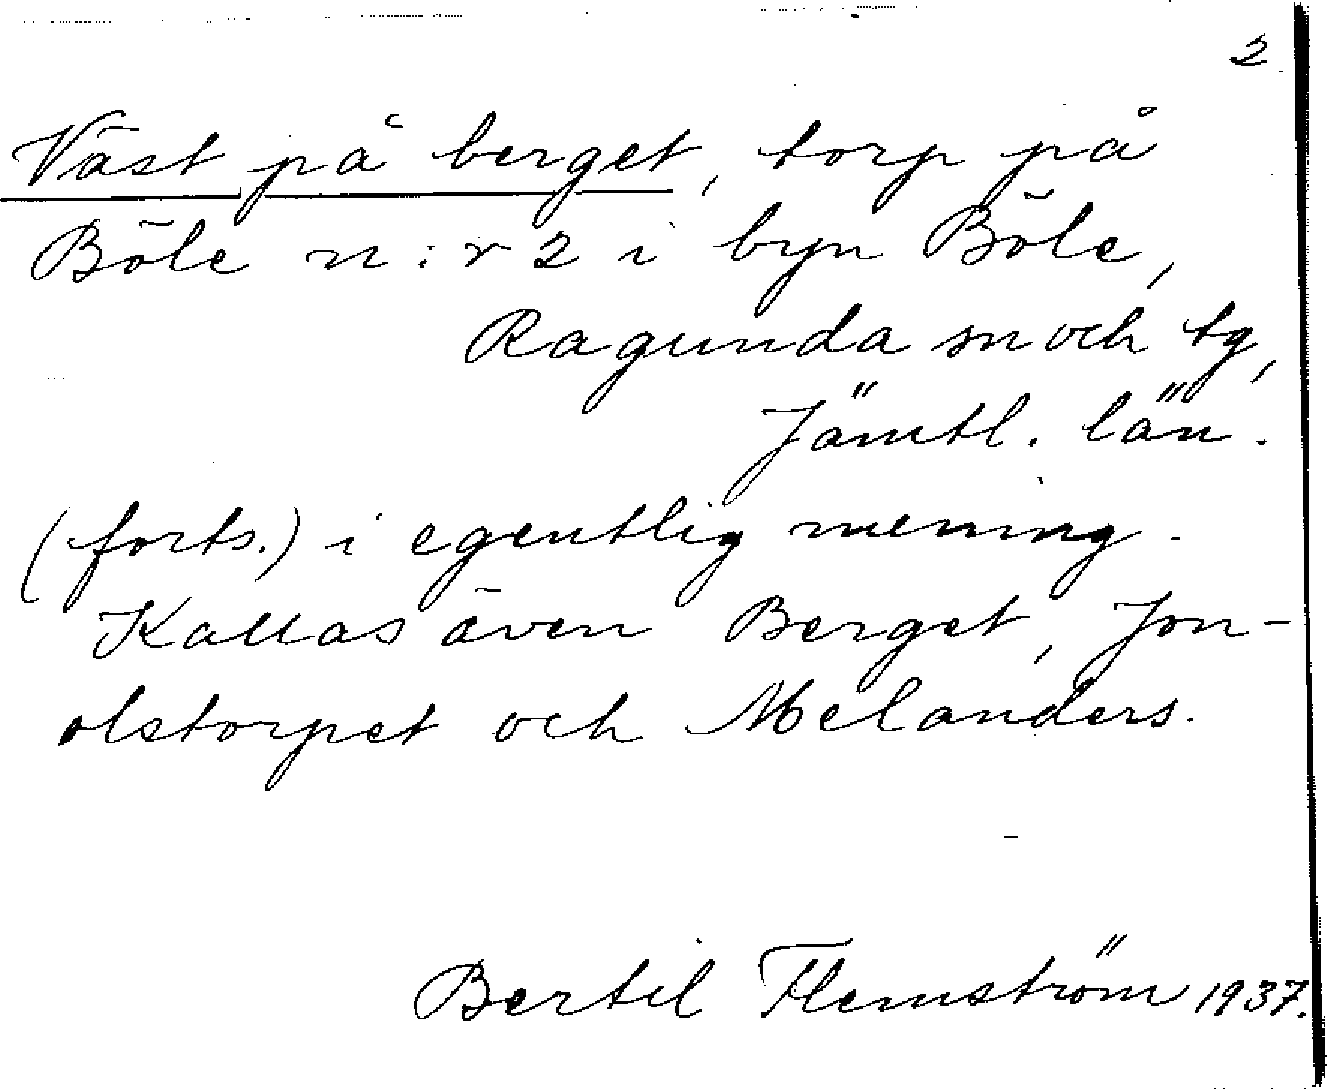 2
Väst på berget, torp på
Böle n:r 2 i byn Böle,
Ragunda sn och tg,
Jämtl. län.
(forts.) i egentlig mening.
Kallas även Berget, Jon-
olstorpet och Melanders.
Bertil Flemström 1937.